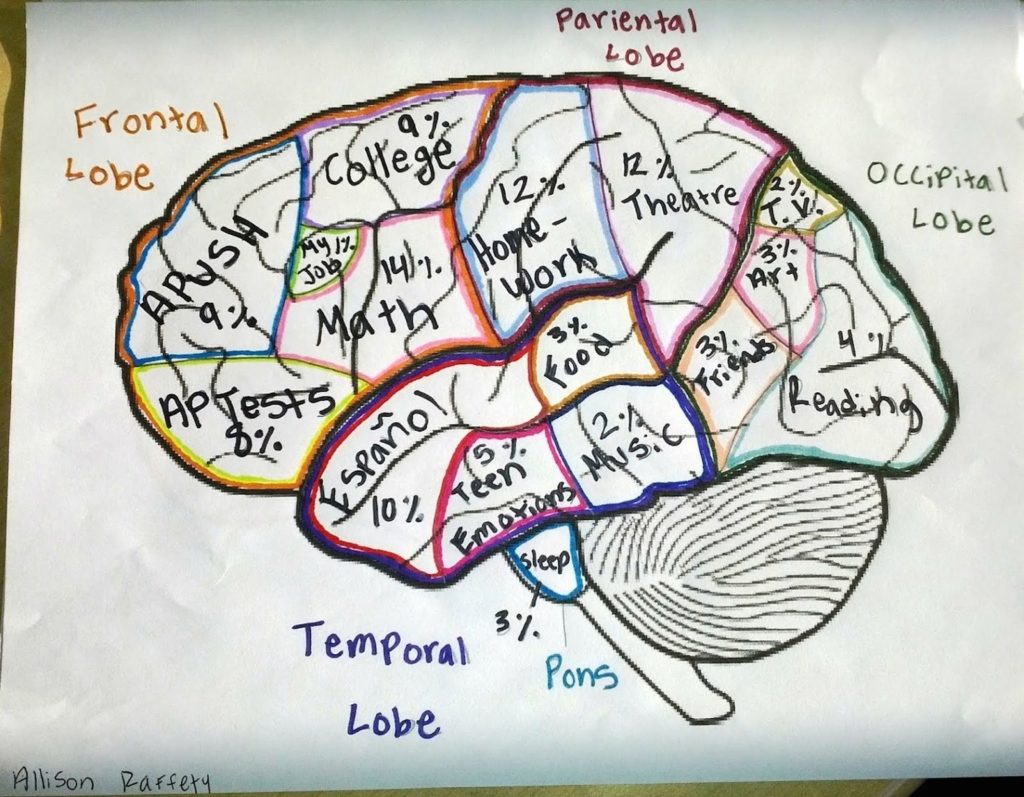 Pariental
Lobe
Frontal
Lobe
Occipital
Lobe
9%
College
APUSH
9%
My 1%
Job
14%
Math
AP Tests
8%
12%
Home-
Work
12%
Theatre
2%
T.V.
3%
Art
3%
Friends
4%
Reading
3%
Food
2%
Music
Español
10%
5%
Teen
Emotions
Sleep
3%
Pons
Temporal
Lobe
Allison Raffety